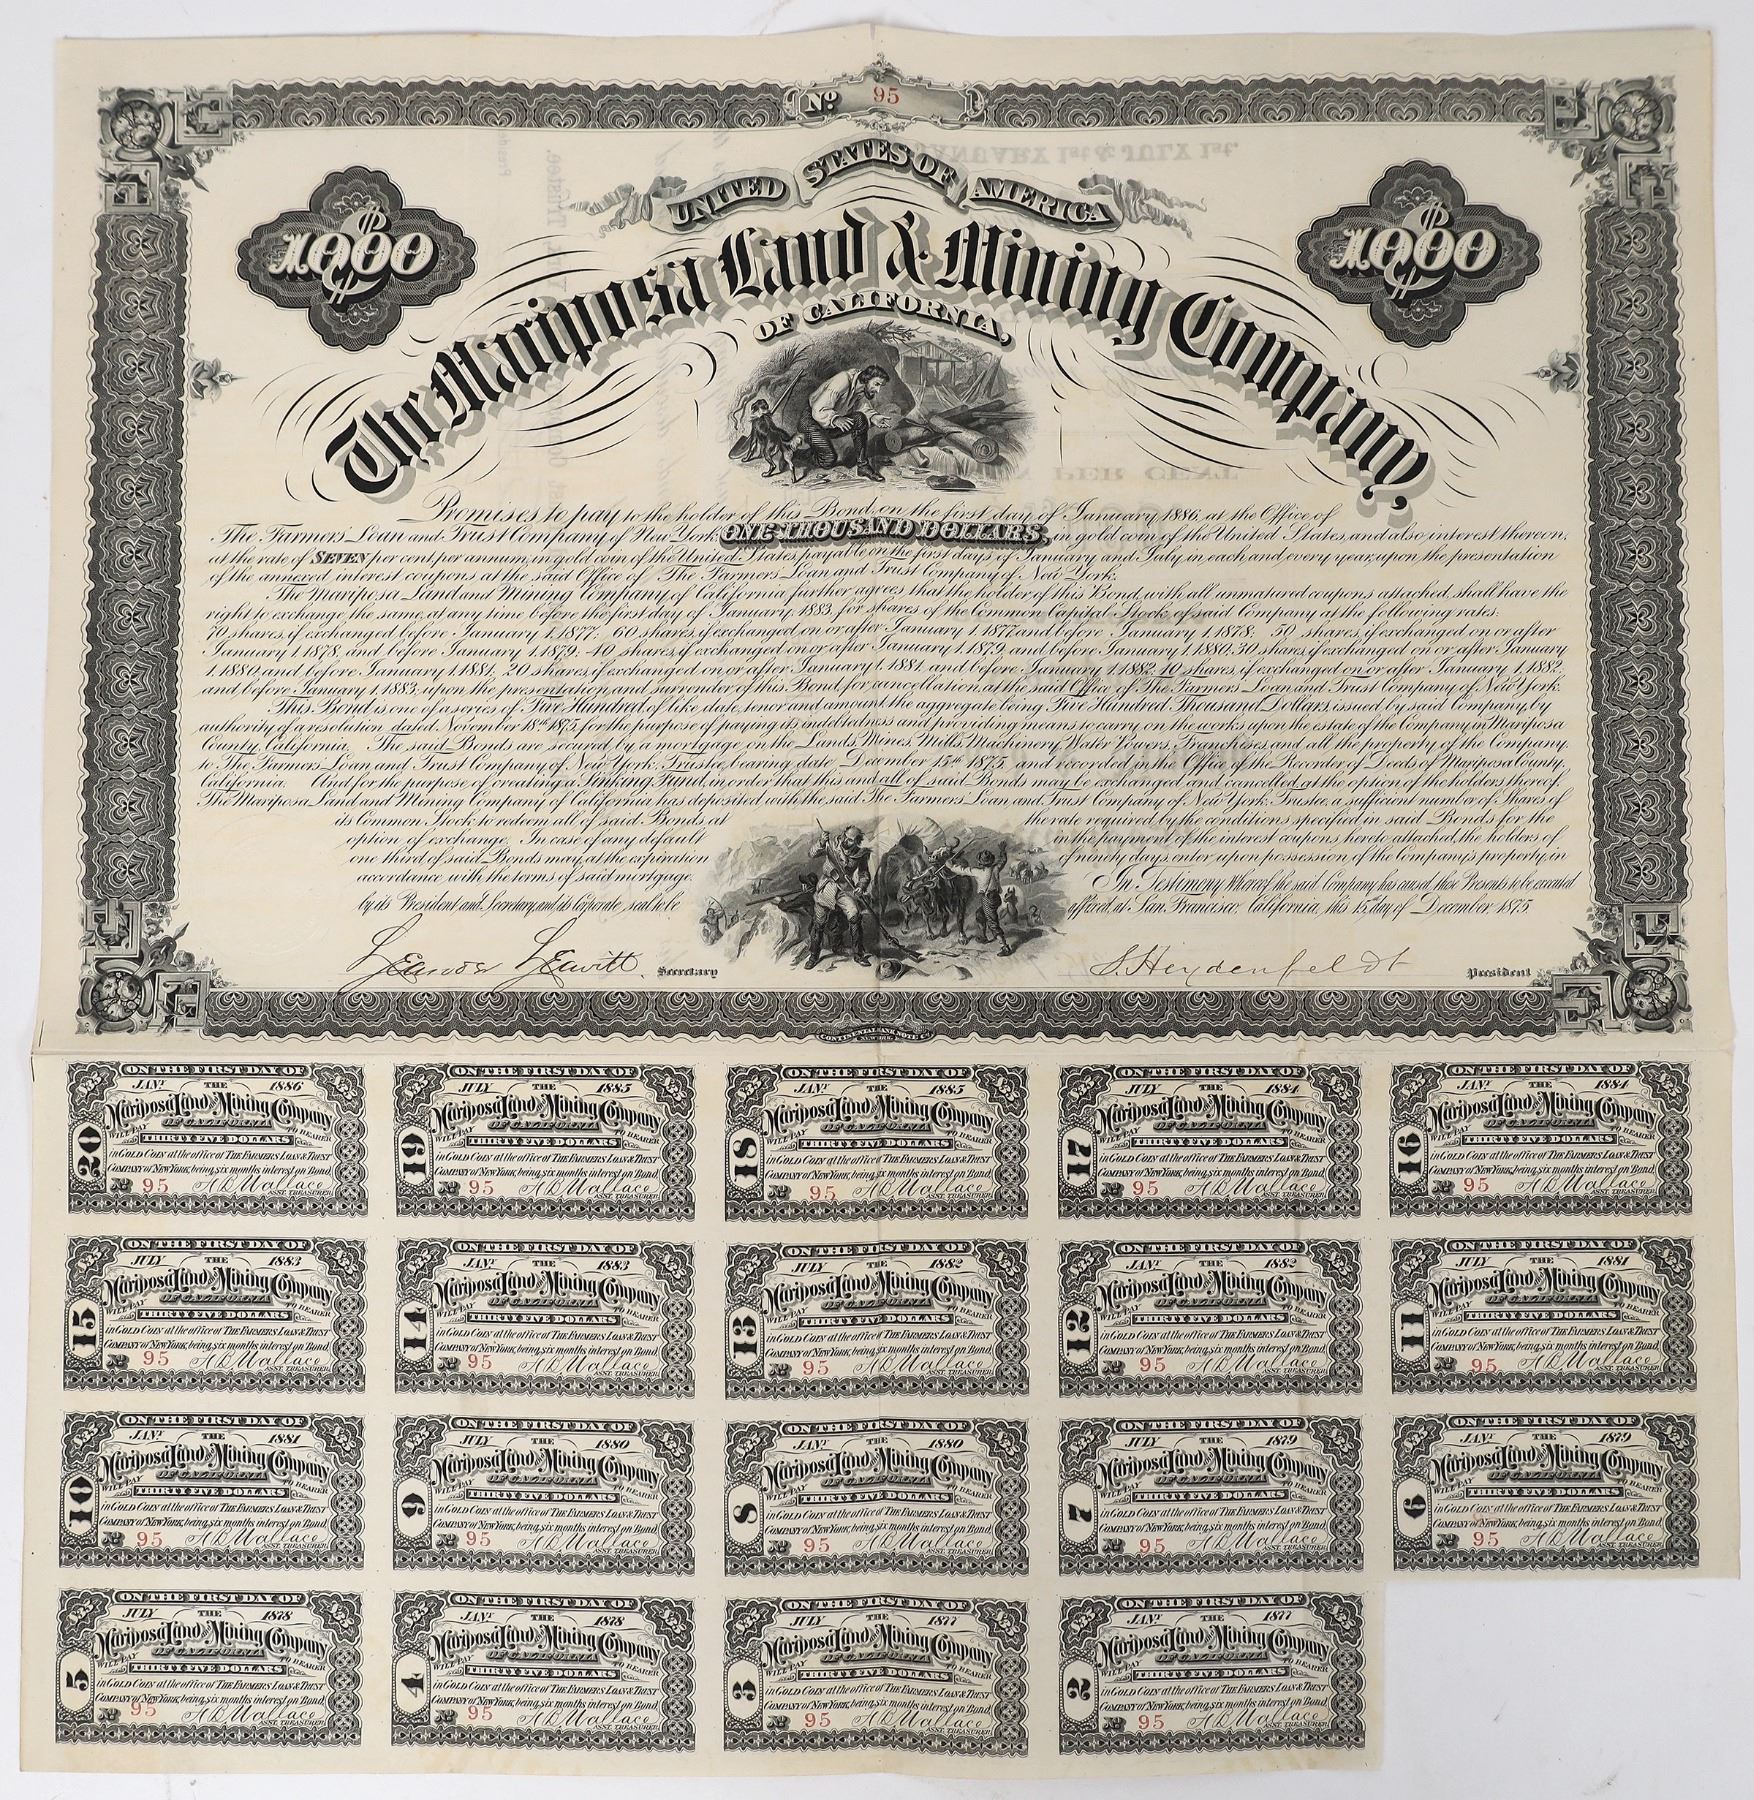 No. 95
UNITED STATES OF AMERICA
$1000
$1000
The Mariposa Land & Mining Company,
OF CALIFORNIA,
Promises to pay to the holder of this Bond, on the first day of January 1886, at the Office of
The Farmers' Loan and Trust Company of New York ONE THOUSAND DOLLARS, in gold coin of the United States, and also interest thereon,
at the rate of SEVEN per cent per annum, in gold coin of the United States, payable on the first days of January and July, in each and every year, upon the presentation
of the annexed interest coupons at the said Office of The Farmers Loan and Trust Company of New York.
The Mariposa Land and Mining Company of California further agrees that the holder of this Bond, with all unmatured coupons attached, shall have the
right to exchange the same, at any time before the first day of January, 1883, for shares of the Common Capital Stock, of said Company at the following rates:
70 shares, if exchanged before January 1, 1877; 60 shares, if exchanged on or after January 1, 1877 and before January 1, 1878; 50 shares, if exchanged on or after
January 1, 1878, and before January 1, 1879; 40 shares, if exchanged on or after January 1, 1879, and before January 1, 1880; 30 shares, if exchanged on or after January
1, 1880, and before January 1, 1881; 20 shares, if exchanged on or after January 1, 1881, and before January 1, 1882; 10 shares, if exchanged on or after January 1, 1882,
and before January 1, 1883, upon the presentation and surrender of this Bond, for cancellation, at the said Office of The Farmers Loan and Trust Company of New York.
This Bond is one of a series of Five Hundred of like date, tenor and amount, the aggregate being Five Hundred Thousand Dollars, issued by said Company, by
authority of a resolution dated November 18th 1875, for the purpose of paying its indebtedness and providing means to carry on the works upon the estate of the Company, in Mariposa
County, California. The said Bonds are secured by a mortgage on the Lands, Mines, Mills, Machinery, Water Powers, Franchises and all the property of the Company,
to The Farmers Loan and Trust Company of New York, Trustee, bearing date December 15th 1875, and recorded in the Office of the Recorder of Deeds of Mariposa County,
California. And for the purpose of creating a Sinking Fund, in order that this and all of said Bonds may be exchanged and cancelled, at the option of the holders thereof,
The Mariposa Land and Mining Company of California has deposited with the said The Farmers Loan and Trust Company of New York, Trustee, a sufficient number of Shares of
its Common Stock to redeem all of said Bonds at the rate required by the conditions specified in said Bonds for the
option of exchange. In case of any default in the payment of the interest coupons hereto attached, the holders of
one third of said Bonds may, at the expiration of ninety days, enter upon possession of the Company's property, in
accordance with the terms of said mortgage. In Testimony Whereof the said Company has caused these Presents to be executed
by its President and Secretary, and its Corporate seal to be affixed, at San Francisco, California, this 15th day of December 1875.
Leander Leavitt Secretary S. Heydenfeldt President
CONTINENTAL BANK NOTE CO. NEW YORK
ON THE FIRST DAY OF
JANY. THE 1886
Mariposa Land and Mining Company
OF CALIFORNIA
WILL PAY TO BEARER
THIRTY FIVE DOLLARS
in GOLD COIN at the office of THE FARMERS LOAN & TRUST
COMPANY of NEW YORK, being, six months interest on Bond
20 No 95 A B Wallace
ASST. TREASURER
ON THE FIRST DAY OF
JULY THE 1885
Mariposa Land and Mining Company
OF CALIFORNIA
WILL PAY TO BEARER
THIRTY FIVE DOLLARS
in GOLD COIN at the office of THE FARMERS LOAN & TRUST
COMPANY of NEW YORK, being, six months interest on Bond
19 No 95 A B Wallace
ASST. TREASURER
ON THE FIRST DAY OF
JANY. THE 1885
Mariposa Land and Mining Company
OF CALIFORNIA
WILL PAY TO BEARER
THIRTY FIVE DOLLARS
in GOLD COIN at the office of THE FARMERS LOAN & TRUST
COMPANY of NEW YORK, being, six months interest on Bond
18 No 95 A B Wallace
ASST. TREASURER
ON THE FIRST DAY OF
JULY THE 1884
Mariposa Land and Mining Company
OF CALIFORNIA
WILL PAY TO BEARER
THIRTY FIVE DOLLARS
in GOLD COIN at the office of THE FARMERS LOAN & TRUST
COMPANY of NEW YORK, being, six months interest on Bond
17 No 95 A B Wallace
ASST. TREASURER
ON THE FIRST DAY OF
JANY. THE 1884
Mariposa Land and Mining Company
OF CALIFORNIA
WILL PAY TO BEARER
THIRTY FIVE DOLLARS
in GOLD COIN at the office of THE FARMERS LOAN & TRUST
COMPANY of NEW YORK, being, six months interest on Bond
16 No 95 A B Wallace
ASST. TREASURER
ON THE FIRST DAY OF
JULY THE 1883
Mariposa Land and Mining Company
OF CALIFORNIA
WILL PAY TO BEARER
THIRTY FIVE DOLLARS
in GOLD COIN at the office of THE FARMERS LOAN & TRUST
COMPANY of NEW YORK, being, six months interest on Bond
15 No 95 A B Wallace
ASST. TREASURER
ON THE FIRST DAY OF
JANY. THE 1883
Mariposa Land and Mining Company
OF CALIFORNIA
WILL PAY TO BEARER
THIRTY FIVE DOLLARS
in GOLD COIN at the office of THE FARMERS LOAN & TRUST
COMPANY of NEW YORK, being, six months interest on Bond
14 No 95 A B Wallace
ASST. TREASURER
ON THE FIRST DAY OF
JULY THE 1882
Mariposa Land and Mining Company
OF CALIFORNIA
WILL PAY TO BEARER
THIRTY FIVE DOLLARS
in GOLD COIN at the office of THE FARMERS LOAN & TRUST
COMPANY of NEW YORK, being, six months interest on Bond
13 No 95 A B Wallace
ASST. TREASURER
ON THE FIRST DAY OF
JANY. THE 1882
Mariposa Land and Mining Company
OF CALIFORNIA
WILL PAY TO BEARER
THIRTY FIVE DOLLARS
in GOLD COIN at the office of THE FARMERS LOAN & TRUST
COMPANY of NEW YORK, being, six months interest on Bond
12 No 95 A B Wallace
ASST. TREASURER
ON THE FIRST DAY OF
JULY THE 1881
Mariposa Land and Mining Company
OF CALIFORNIA
WILL PAY TO BEARER
THIRTY FIVE DOLLARS
in GOLD COIN at the office of THE FARMERS LOAN & TRUST
COMPANY of NEW YORK, being, six months interest on Bond
11 No 95 A B Wallace
ASST. TREASURER
ON THE FIRST DAY OF
JANY. THE 1881
Mariposa Land and Mining Company
OF CALIFORNIA
WILL PAY TO BEARER
THIRTY FIVE DOLLARS
in GOLD COIN at the office of THE FARMERS LOAN & TRUST
COMPANY of NEW YORK, being, six months interest on Bond
10 No 95 A B Wallace
ASST. TREASURER
ON THE FIRST DAY OF
JULY THE 1880
Mariposa Land and Mining Company
OF CALIFORNIA
WILL PAY TO BEARER
THIRTY FIVE DOLLARS
in GOLD COIN at the office of THE FARMERS LOAN & TRUST
COMPANY of NEW YORK, being, six months interest on Bond
9 No 95 A B Wallace
ASST. TREASURER
ON THE FIRST DAY OF
JANY. THE 1880
Mariposa Land and Mining Company
OF CALIFORNIA
WILL PAY TO BEARER
THIRTY FIVE DOLLARS
in GOLD COIN at the office of THE FARMERS LOAN & TRUST
COMPANY of NEW YORK, being, six months interest on Bond
8 No 95 A B Wallace
ASST. TREASURER
ON THE FIRST DAY OF
JULY THE 1879
Mariposa Land and Mining Company
OF CALIFORNIA
WILL PAY TO BEARER
THIRTY FIVE DOLLARS
in GOLD COIN at the office of THE FARMERS LOAN & TRUST
COMPANY of NEW YORK, being, six months interest on Bond
7 No 95 A B Wallace
ASST. TREASURER
ON THE FIRST DAY OF
JANY. THE 1879
Mariposa Land and Mining Company
OF CALIFORNIA
WILL PAY TO BEARER
THIRTY FIVE DOLLARS
in GOLD COIN at the office of THE FARMERS LOAN & TRUST
COMPANY of NEW YORK, being, six months interest on Bond
6 No 95 A B Wallace
ASST. TREASURER
ON THE FIRST DAY OF
JULY THE 1878
Mariposa Land and Mining Company
OF CALIFORNIA
WILL PAY TO BEARER
THIRTY FIVE DOLLARS
in GOLD COIN at the office of THE FARMERS LOAN & TRUST
COMPANY of NEW YORK, being, six months interest on Bond
5 No 95 A B Wallace
ASST. TREASURER
ON THE FIRST DAY OF
JANY. THE 1878
Mariposa Land and Mining Company
OF CALIFORNIA
WILL PAY TO BEARER
THIRTY FIVE DOLLARS
in GOLD COIN at the office of THE FARMERS LOAN & TRUST
COMPANY of NEW YORK, being, six months interest on Bond
4 No 95 A B Wallace
ASST. TREASURER
ON THE FIRST DAY OF
JULY THE 1877
Mariposa Land and Mining Company
OF CALIFORNIA
WILL PAY TO BEARER
THIRTY FIVE DOLLARS
in GOLD COIN at the office of THE FARMERS LOAN & TRUST
COMPANY of NEW YORK, being, six months interest on Bond
3 No 95 A B Wallace
ASST. TREASURER
ON THE FIRST DAY OF
JANY. THE 1877
Mariposa Land and Mining Company
OF CALIFORNIA
WILL PAY TO BEARER
THIRTY FIVE DOLLARS
in GOLD COIN at the office of THE FARMERS LOAN & TRUST
COMPANY of NEW YORK, being, six months interest on Bond
2 No 95 A B Wallace
ASST. TREASURER